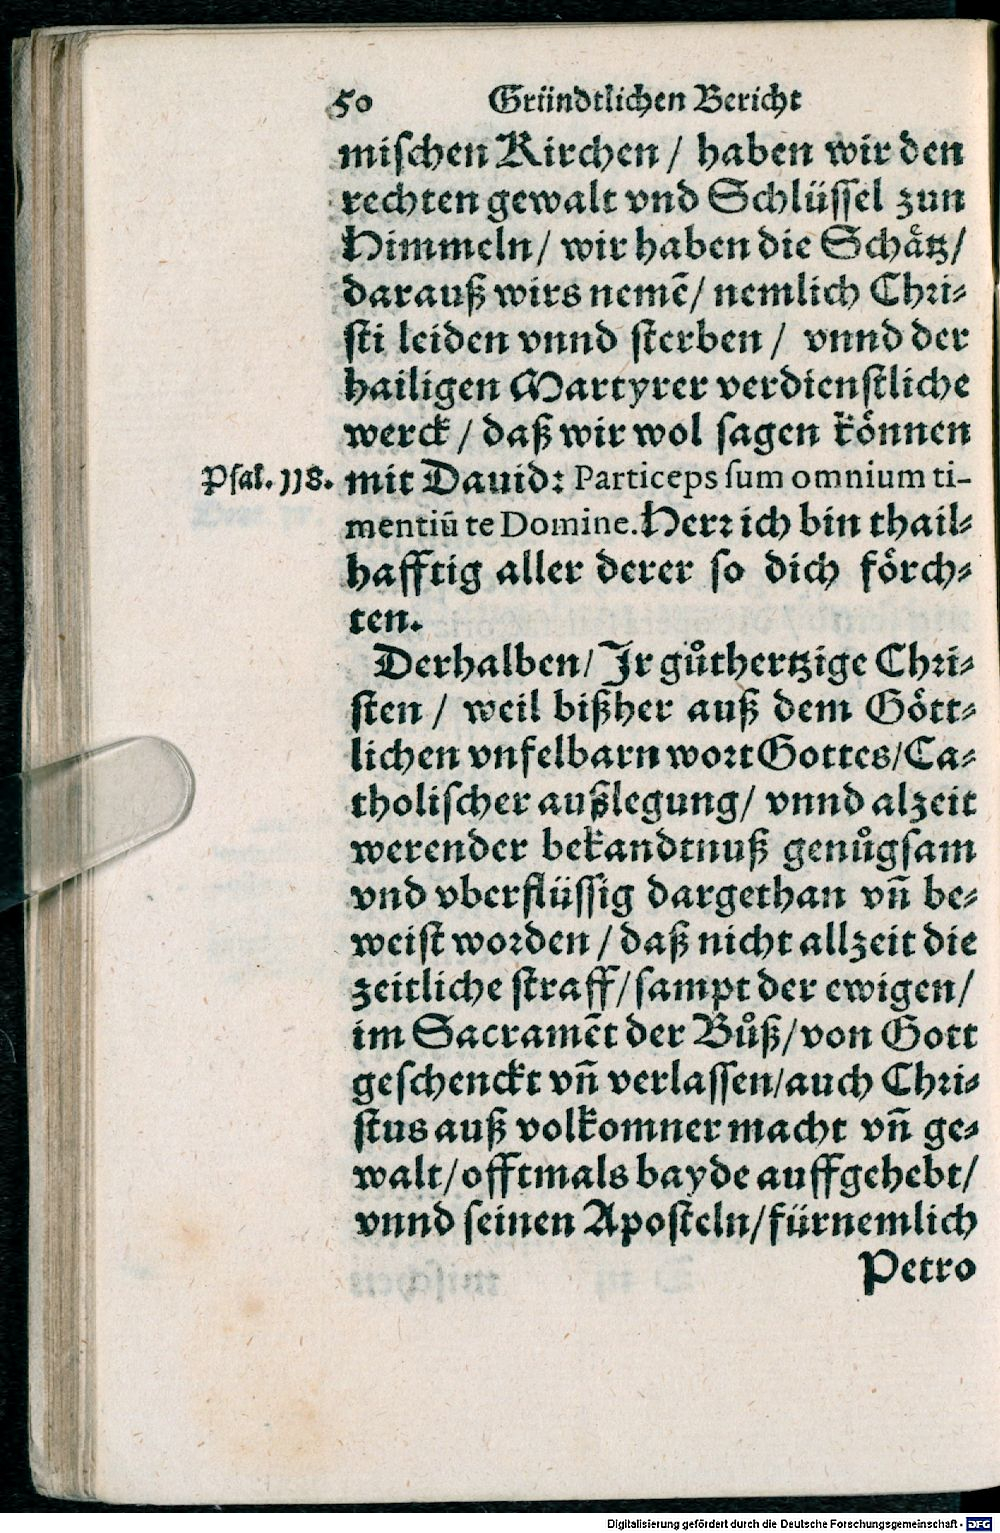 50 Gründtlichen Bericht
mischen Kirchen / haben wir den
rechten gewalt vnd Schlüssel zun
Himmeln / wir haben die Schaͤtz /
darauß wirs nemẽ / nemlich Chri⸗
sti leiden vnnd sterben / vnnd der
hailigen Martyrer verdienstliche
werck / daß wir wol sagen koͤnnen
Psal. 118. mit Dauid: Particeps sum omnium ti-
mentiũ te Domine. Herr ich bin thail⸗
hafftig aller derer so dich foͤrch⸗
ten.
Derhalben / Jr guͦthertzige Chri⸗
sten / weil bißher auß dem Goͤtt⸗
lichen vnfelbarn wort Gottes / Ca⸗
tholischer außlegung / vnnd alzeit
werender bekandtnuß genuͦgsam
vnd vberflüssig dargethan vñ be⸗
weist worden / daß nicht allzeit die
zeitliche straff / sampt der ewigen /
im Sacramẽt der Buͦß / von Gott
geschenckt vñ verlassen / auch Chri⸗
stus auß volkomner macht vñ ge⸗
walt / offtmals bayde auffgehebt /
vnnd seinen Aposteln / fürnemlich
Petro
Digitalisierung gefördert durch die Deutsche Forschungsgemeinschaft - DFG